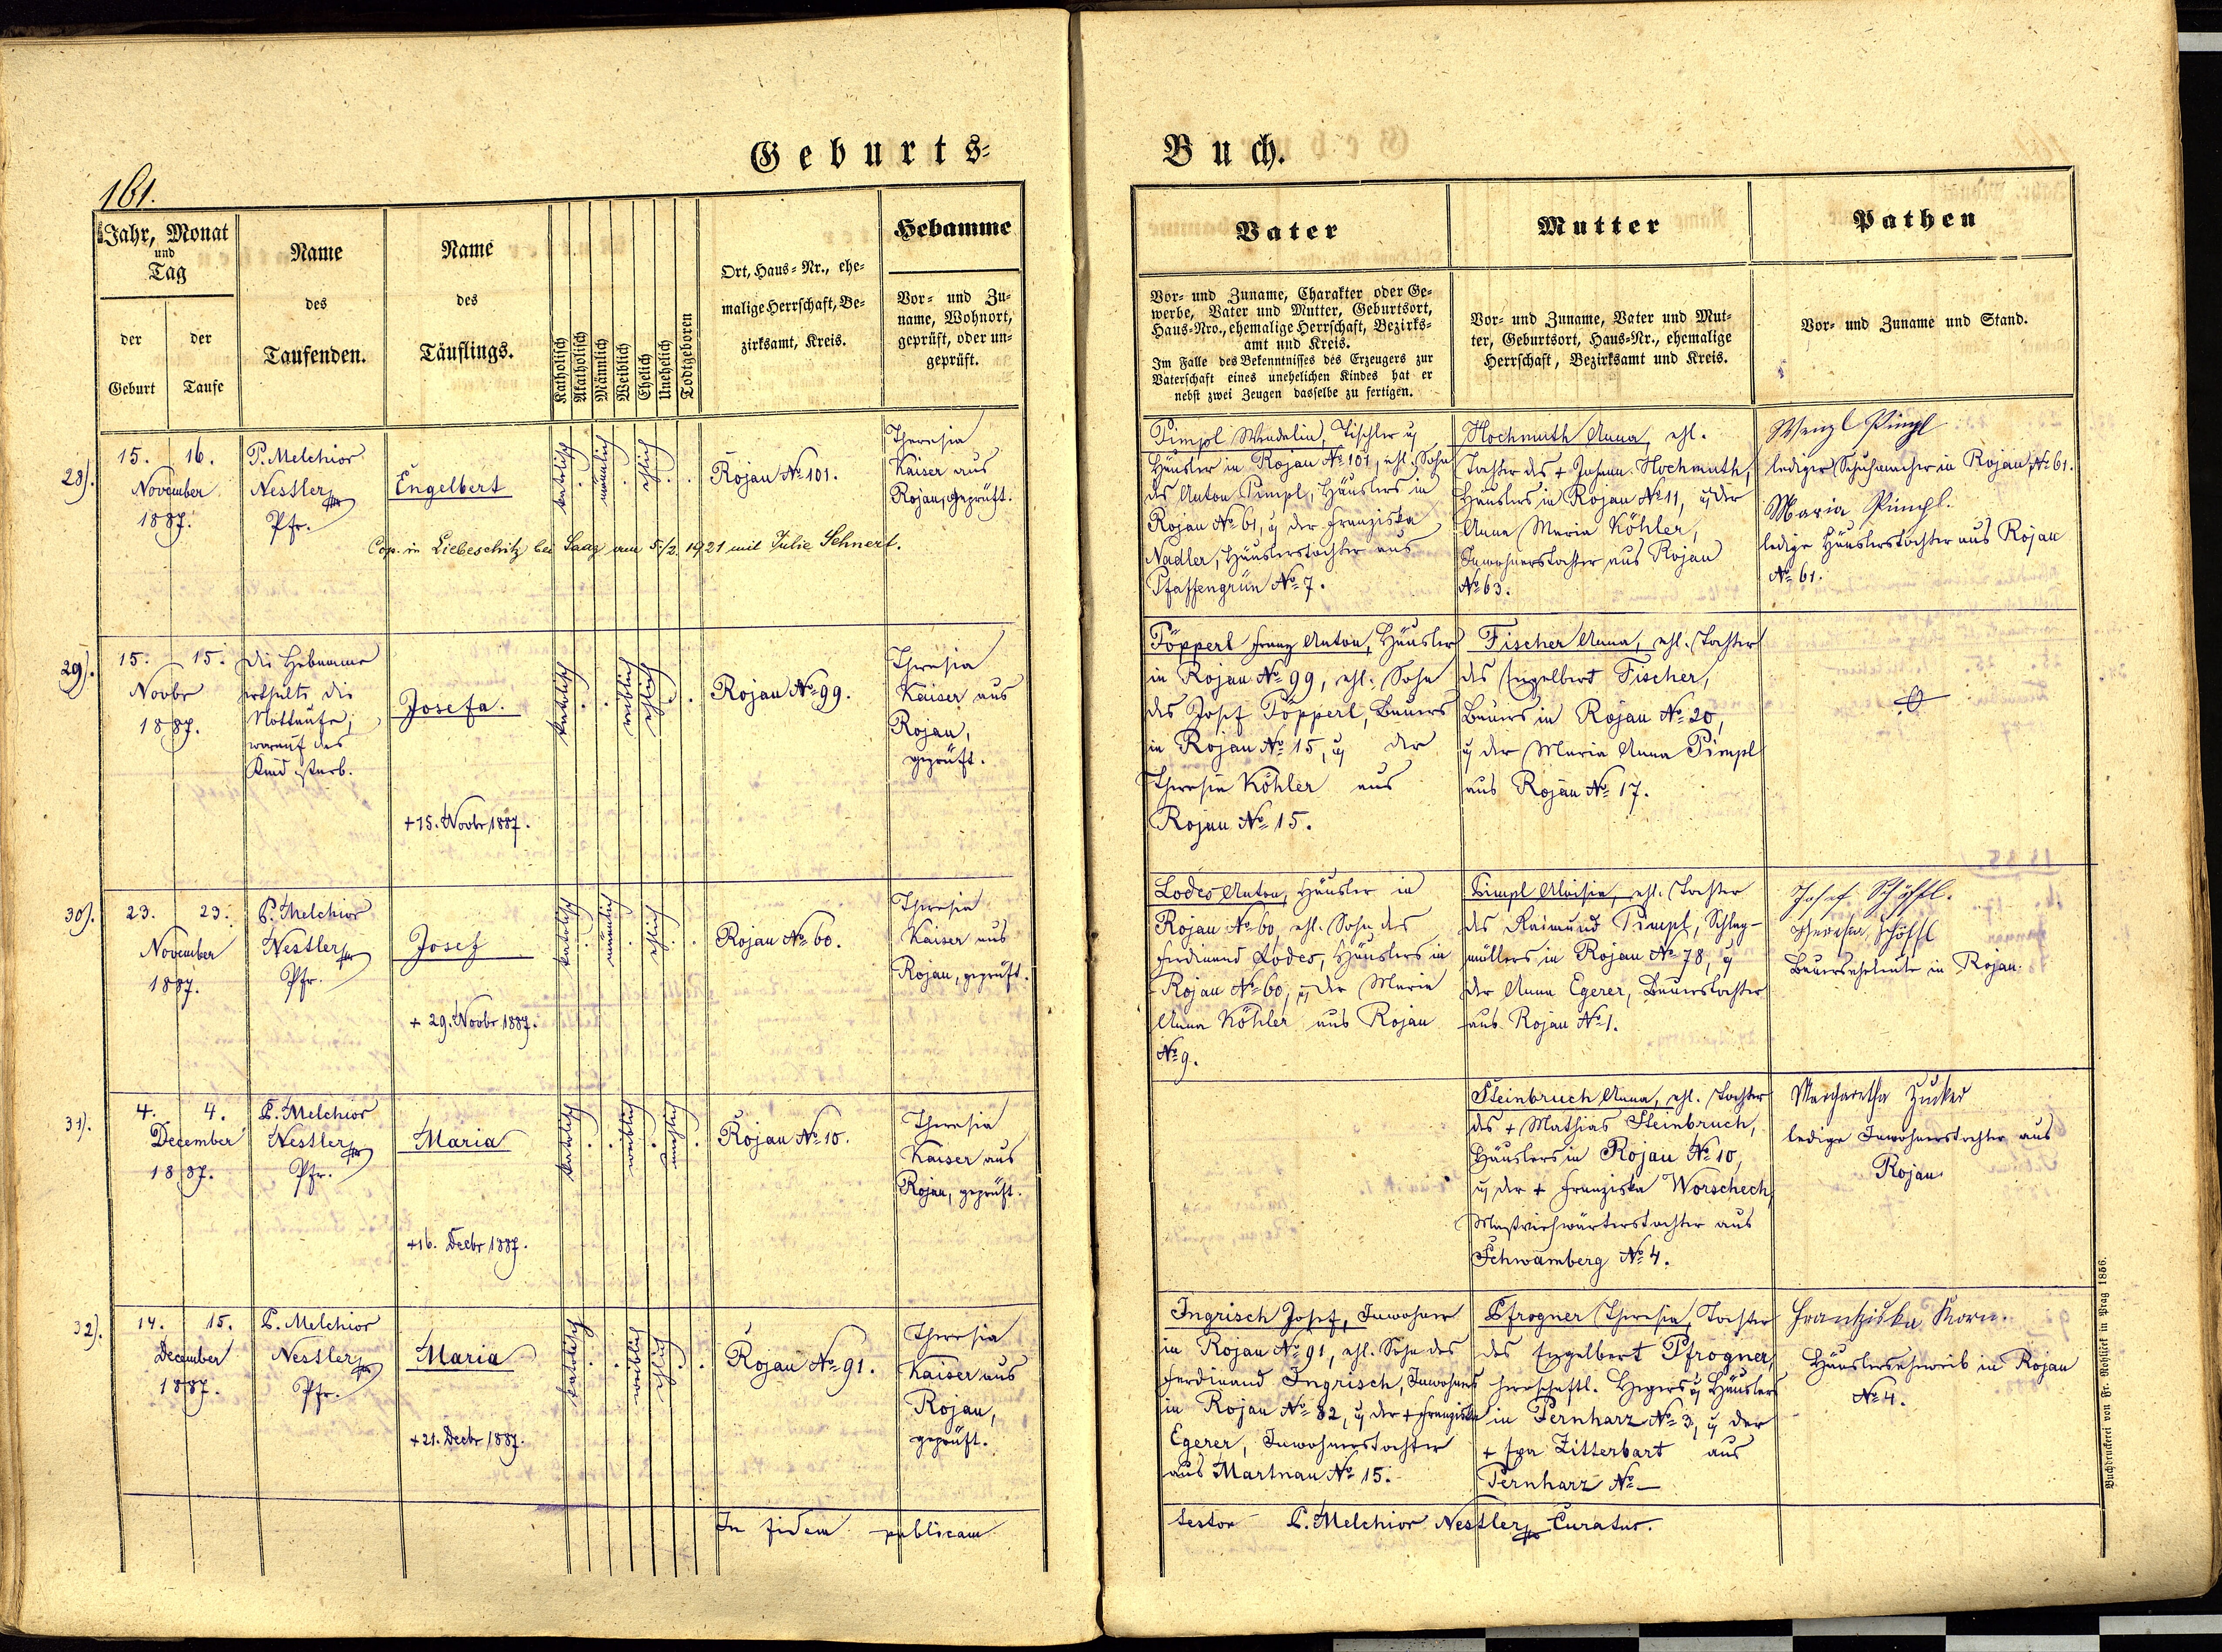 Geburts-
Buch.
161.
Jahr, Monat
und
Tag
der
Geburt
der
Taufe
Name
des
Taufenden.
Name
des
Täuflings.
Katholisch
Akatholisch
Männlich
Weiblich
Ehelich
Unehelich
Todtgeboren
Ort, Haus-Nr., ehe-
malige Herrschaft, Be-
zirksamt, Kreis.
Hebamme
Vor- und Zu-
name, Wohnort,
geprüft, oder un-
geprüft.
Vater
Vor- und Zuname, Charakter oder Ge-
werbe, Vater und Mutter, Geburtsort,
Haus-Nro., ehemalige Herrschaft, Bezirks-
amt und Kreis.
Im Falle des Bekenntnisses des Erzeugers zur
Vaterschaft eines unehelichen Kindes hat er
nebst zwei Zeugen dasselbe zu fertigen.
Mutter
Vor- und Zuname, Vater und Mut-
ter, Geburtsort, Haus-Nr., ehemalige
Herrschaft, Bezirksamt und Kreis.
Pathen
Vor- und Zuname und Stand.
28).
15. 16.
November
1887.
P. Melchior
Nestler
Pfr.
Engelbert
katolisch
männlich
ehlich
Rojau No 101.
Theresia
Kaiser aus
Rojau, geprüft.
Cop. in Liebeschitz bei Saaz am 5/2. 1921 mit Julie Sehnert.
Pimpl Wendelin, Tischler u
Häusler in Rojau No 101, ehl. Sohn
des Anton Pimpl, Häuslers in
Rojau No 61, u der Franziska
Nadler, Häuslerstochter aus
Pfaffengrün No 7.
Hochmuth Anna, ehl.
Tochter des + Johann Hochmuth,
Häuslers in Rojau No 11, u der
Anna Maria Köhler,
Inwohnerstochter aus Rojau
No 63.
Wenzl Pimpl
lediger Schuhmacher in Rojau, No 61.
Maria Pimpl.
ledige Häuslerstochter aus Rojau
No 61.
29).
15. 15.
Novbr
1887.
die Hebamme
ertheilte die
Nottaufe;
worauf das
Kind starb.
Josefa.
+ 15. Novbr 1887.
katolisch
weiblich
ehelich
Rojau No 99.
Theresia
Kaiser aus
Rojau,
geprüft.
Töpperl Franz Anton, Häusler
in Rojau No 99, ehl. Sohn
des Josef Töpperl, Bauers
in Rojau No 15, u der
Theresia Köhler aus
Rojau No 15.
Fischer Anna, ehl. Tochter
des Engelbert Fischer,
Bauers in Rojau No 20,
u der Maria Anna Pimpl
aus Rojau No 17.
30).
23. 23.
November
1887.
P. Melchior
Nestler
Pfr.
Josef
+ 29. Novbr 1887.
katolisch
männlich
ehlich
Rojau No 60.
Theresia
Kaiser aus
Rojau, geprüft.
Lodes Anton, Häusler in
Rojau No 60, ehl. Sohn des
Ferdinand Lodes, Häuslers in
Rojau No 60, u der Maria
Anna Köhler aus Rojau
No 9.
Pimpl Aloisia, ehl. Tochter
des Raimund Pimpl, Schlag-
müllers in Rojau No 78, u
der Anna Egerer, Bauerstochter
aus Rojau No 1.
Josef Schöffl.
Theresia Schöffl
Bauerseheleute in Rojau.
31).
4. 4.
December
1887.
P. Melchior
Nestler
Pfr.
Maria
+ 16. Decbr 1887.
katolisch
weiblich
unehlich
Rojau No 10.
Theresia
Kaiser aus
Rojau, geprüft.
Steinbruch Anna, ehl. Tochter
des + Mathias Steinbruch,
Häuslers in Rojau No 10,
u der + Franziska Worschech,
Mastviehwärterstochter aus
Schwamberg No 4.
Margaretha Zucker
ledige Inwohnerstochter aus
Rojau.
32).
14. 15.
December
1887.
P. Melchior
Nestler
Pfr.
Maria
+ 21. Decbr 1887.
katolisch
weiblich
ehlich
Rojau No 91.
Theresia
Kaiser aus
Rojau,
geprüft.
Ingrisch Josef, Inwohner
in Rojau No 91, ehl. Sohn des
Ferdinand Ingrisch, Inwohners
in Rojau No 82, u der + Franziska
Egerer, Inwohnerstochter
aus Martnau No 15.
Pfrogner Theresia, Tochter
des Engelbert Pfrogner,
herrschaftl. Hegers u Häuslers
in Pernharz No 3, u der
+ Eva Zitterbart aus
Pernharz No —
Frantziska Korn.
Häuslerseheweib in Rojau
No 4.
In fidem publicam
testor P. Melchior Nestler Curatus.
Buchdruckerei von Fr. Rohliček in Prag 1856.